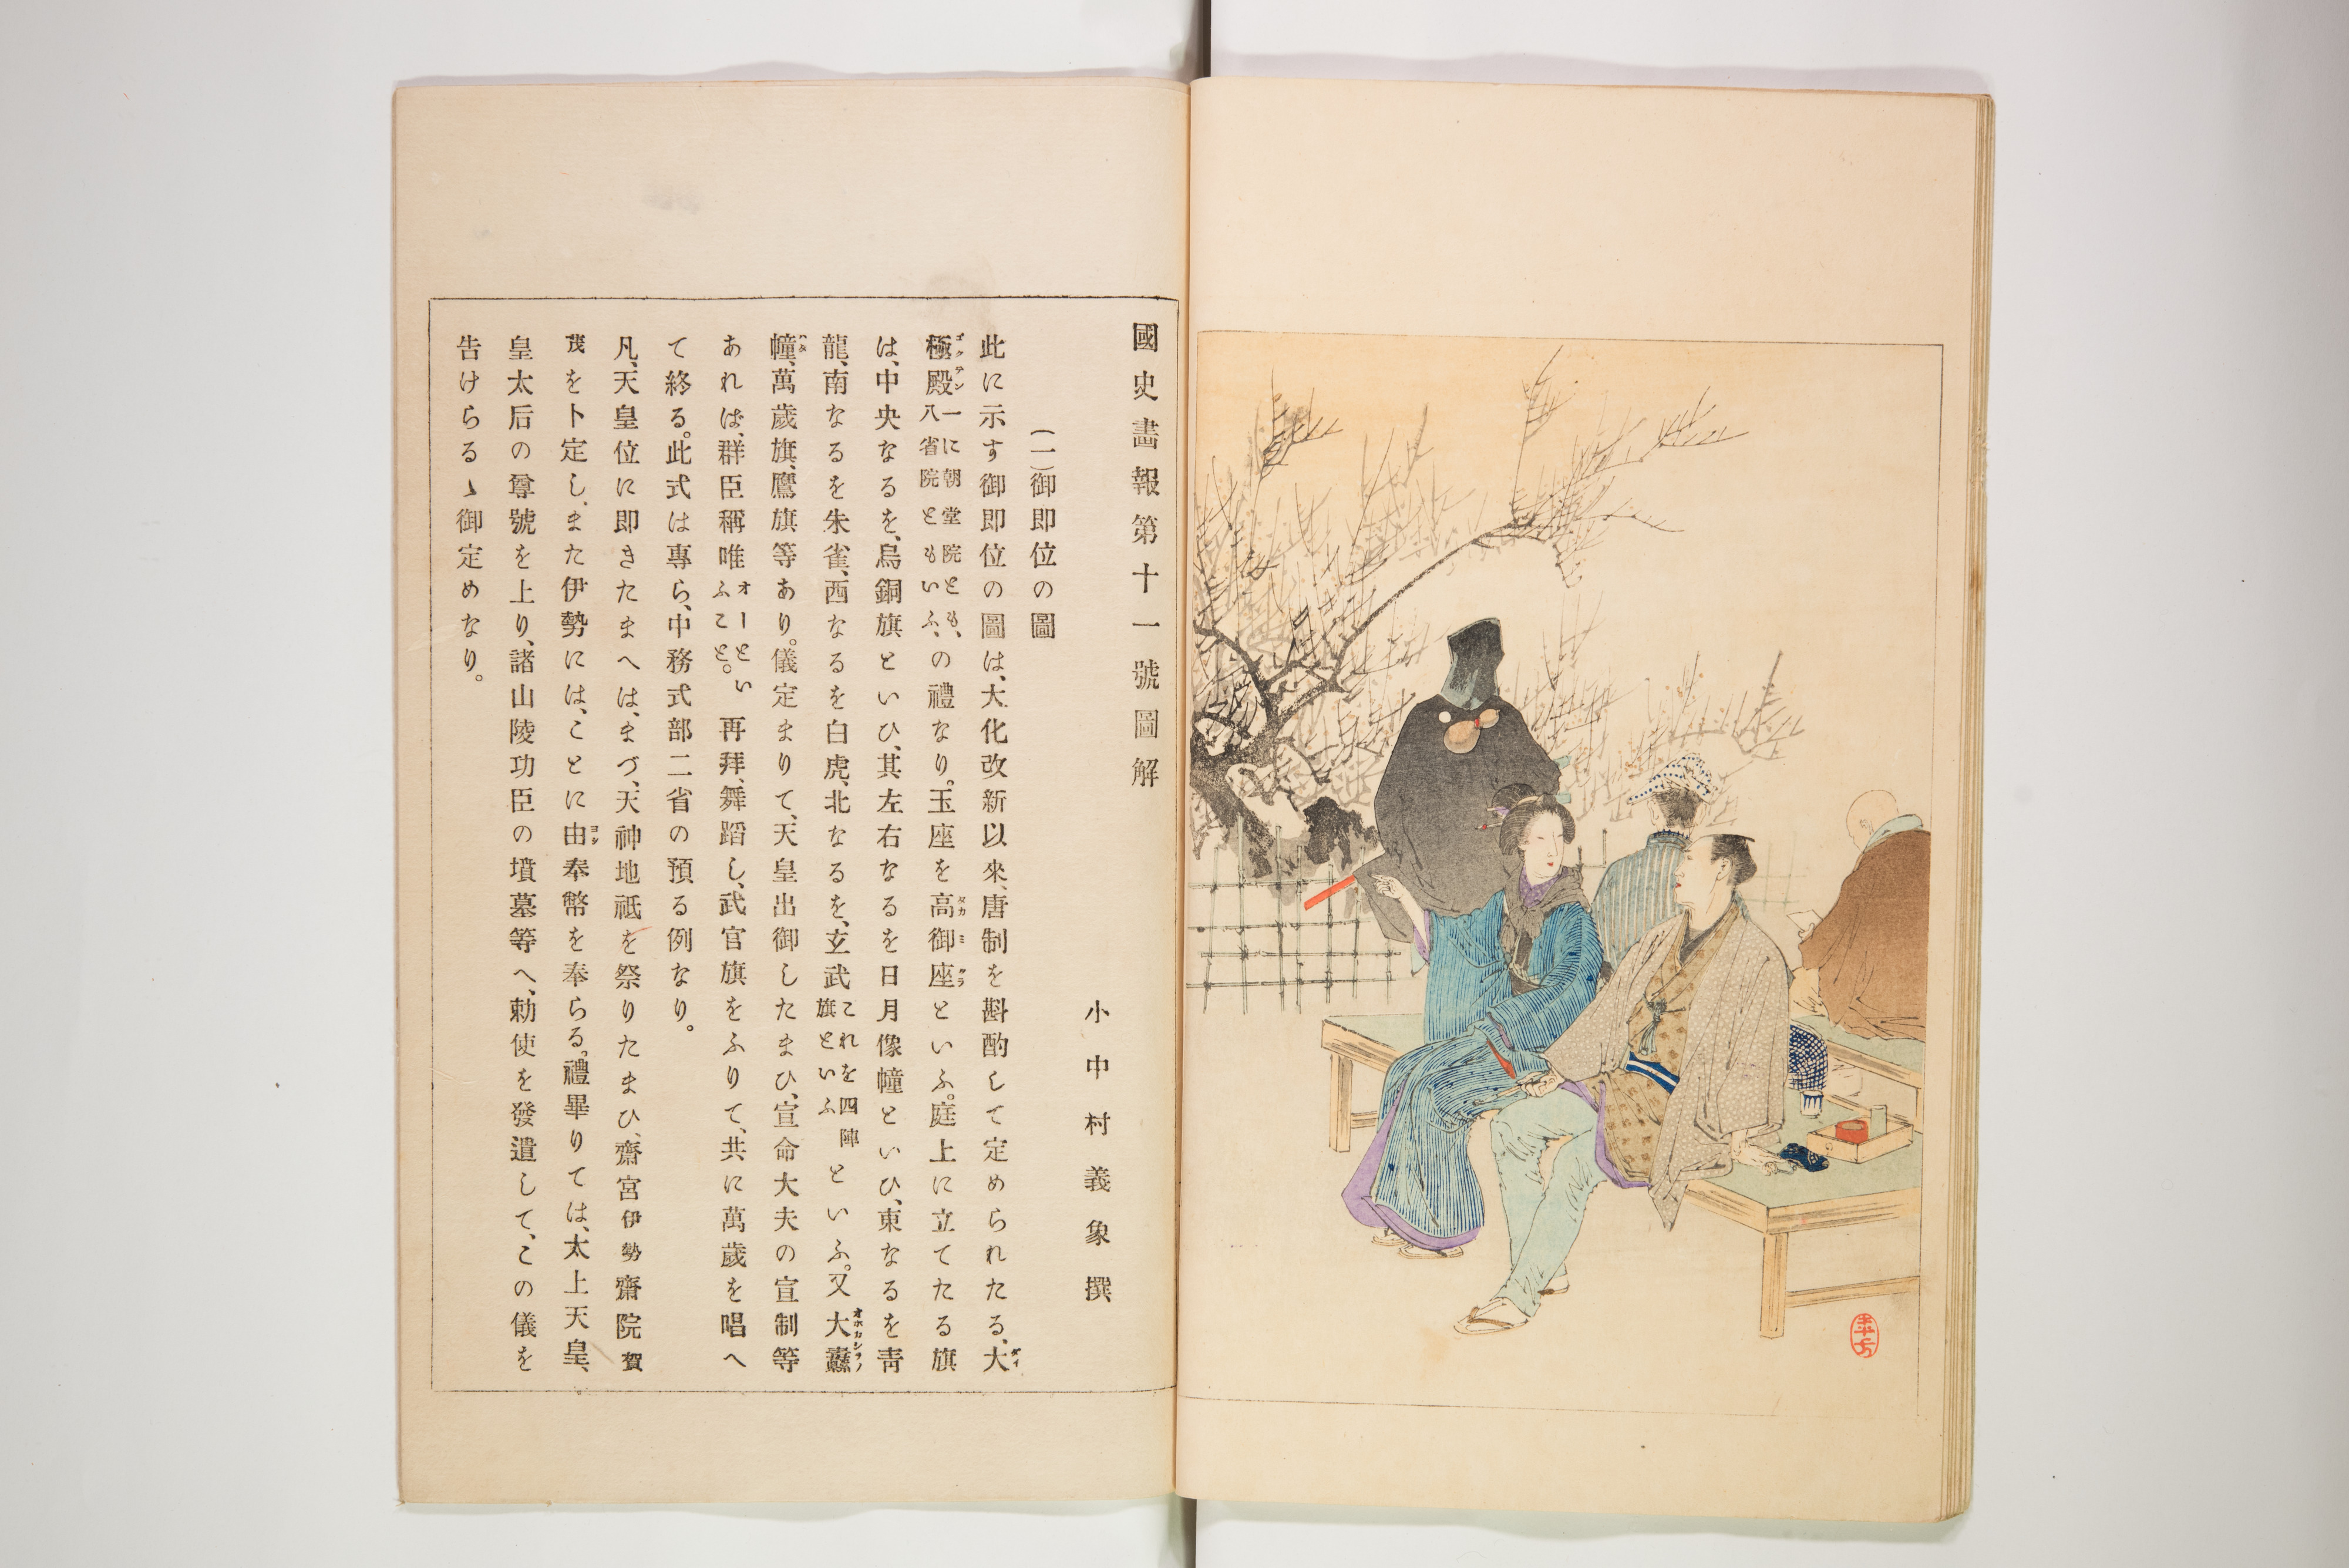 國史畵報第十一號圖解
小中村義象撰
(一)御即位の圖
此に示す御即位の圖は、大化改新以來、唐制を斟酌して定められたる、大ダイ
極ゴク殿デン一に朝堂院とも、八省院ともいふ、の禮なり。玉座を高タカ御ミ座クラといふ。庭上に立てたる旗
は、中央なるを、烏銅旗といひ、其左右なるを日月像幢といひ、東なるを靑
龍、南なるを朱雀、西なるを白虎、北なるを、玄武これを四陣旗といふといふ。又大纛オホガシラノ
幢ハタ、萬歲旗、鷹旗等あり。儀定まりて、天皇出御したまひ、宣命大夫の宣制等
あれは、群臣稱唯オーといふこと。再拜、舞蹈し、武官旗をふりて、共に萬歲を唱へ
て終る。此式は專ら、中務式部二省の預る例なり。
凡、天皇位に即きたまへは、まづ、天神地祇を祭りたまひ、齋宮伊勢齋院賀
茂を卜定し、また伊勢には、ことに由ヨシ奉幣を奉らる。禮畢りては、太上天皇、
皇太后の尊號を上り、諸山陵功臣の墳墓等へ、勅使を發遣して、この儀を
告けらるゝ御定めなり。
半古